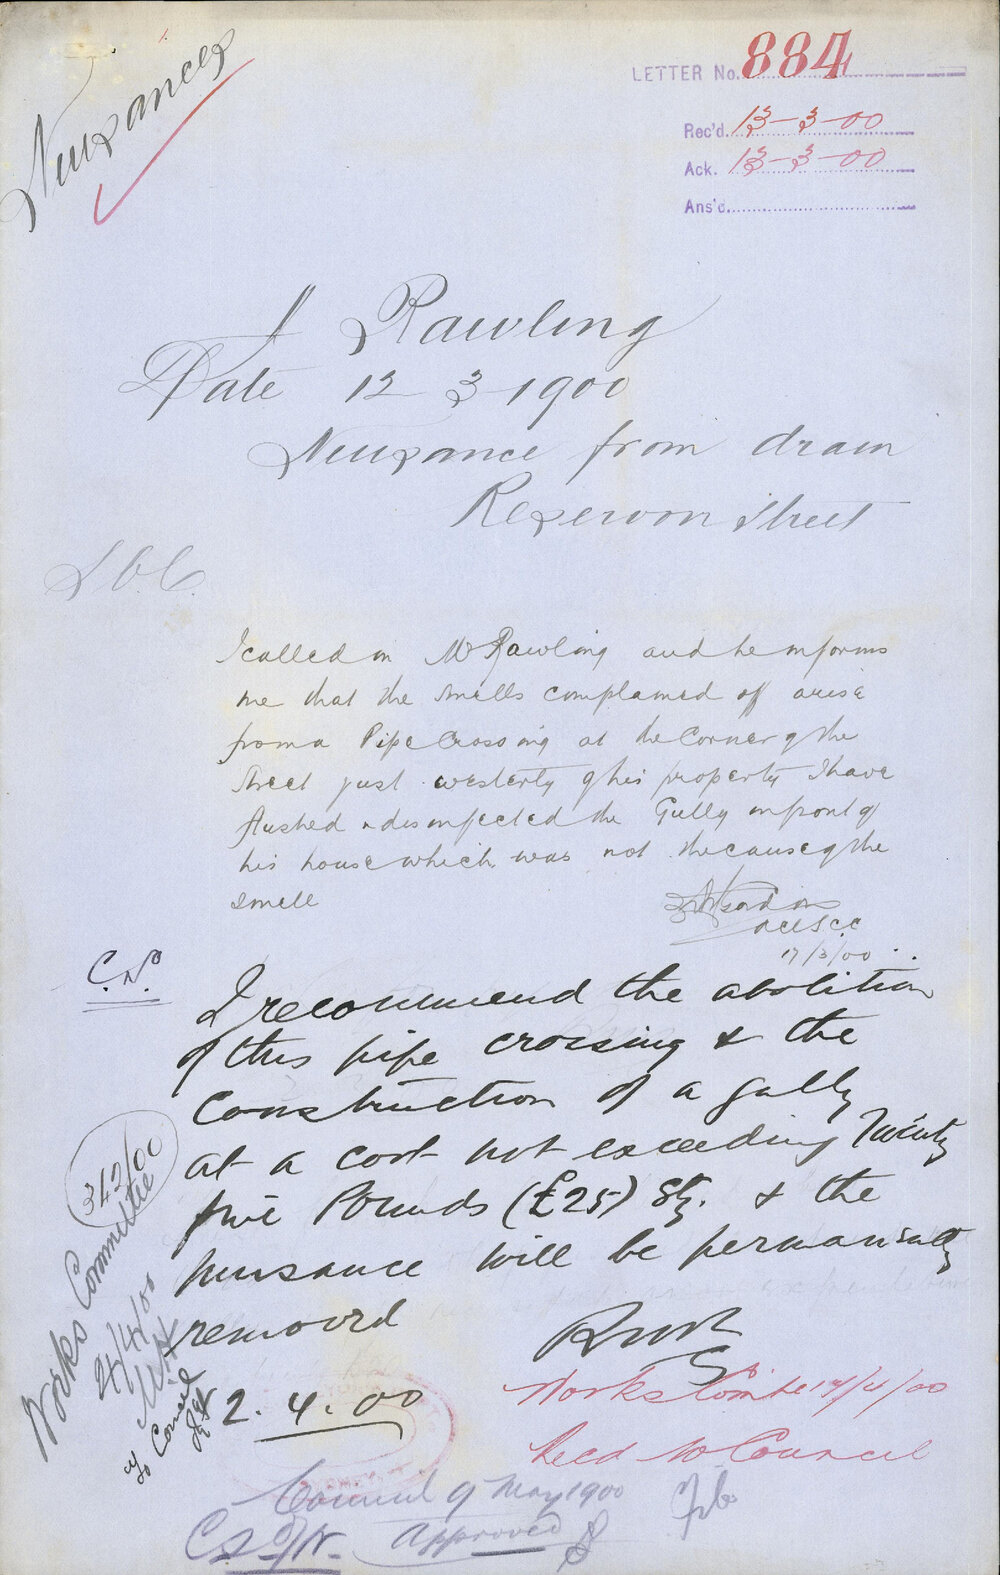 Nuisances
LETTER No. 884
Rec'd. 13-3-00
Ack. 13-3-00
Ans'd.
J Rawling
Date 12-3-1900
Nuisance from drain
Reservoir Street
I called on Mr Rawling and he informs
me that the smells complained off arise
from a Pipe Crossing at the Corner of the
Street just westerly of his property I have
flushed & disinfected the Gully in front of
his house which was not the cause of the
smell
17/3/00
C.S.
I recommend the abolition
of this pipe crossing & the
construction of a gully
at a cost not exceeding Twenty
five Pounds (£25) Stg. & the
nuisance will be permanently
removed
2.4.00
342/00
Works Committee
24/4/00
To Council
Works Comtee 17/4/00
Recd to Council
Council 9 May 1900
Approved